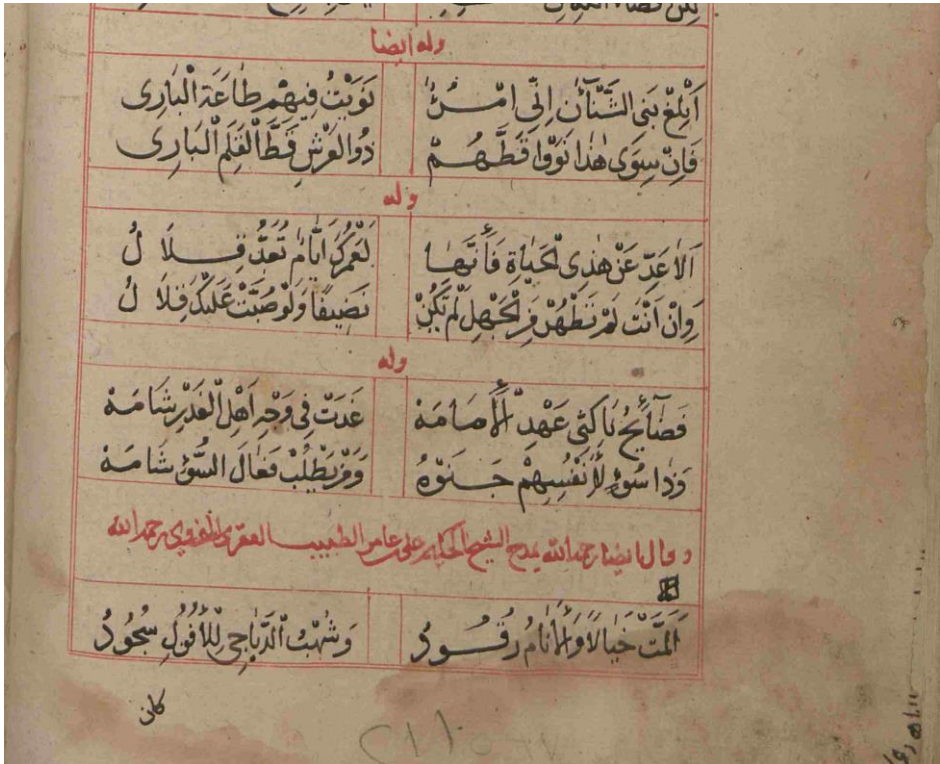 وله ايضا
اَبْلِغْ بَنِى الشَّنْآنِ اِنِّى امْرُؤٌ نَوَيْتُ فِيهِمْ طَاعَةَ الْبَارِى
فَاِنْ سِوَى هٰذَا نَوَوْا قَطَّهُمْ ذُو الْعَرْشِ قَطَّ الْقَلَمِ الْبَارِى
وله
اَلَا عَدِّ عَنْ هٰذِى الْحَيٰاةِ فَأَنَّهٰا لَعَمْرُكَ اَيَّامٌ تُعَدُّ قِلَالُ
وَاِنْ اَنْتَ لَمْ تَطْهُرْ مِنَ الْجَهْلِ لَمْ تَكُنْ نَضِيفًا وَلَوْ صُبَّتْ عَلَيْكَ قِلَالُ
وله
فَضَآئِحُ نَاكِثِى عَهْدِ الْأَمَامَهْ غَدَتْ فِى وَجْهِ اَهْلِ الْغَدْرِ شَامَهْ
وَذَا سُوْءٌ لِأَنْفُسِهِمْ جَنَوْهُ وَمَنْ يَطْلُبْ فَعَالَ السُّوْءِ شَامَهْ
وقال ايضا رحمه الله يمدح الشيخ الحكيم على عامر الطبيب العقرى النزوى رحمه الله
اَلَمَّتْ خَيَالًا وَالْأَنَامُ رُقُودُ وَشُهْبُ الدَّيَاجِى لِلْأُفُولِ سُجُودُ
كان